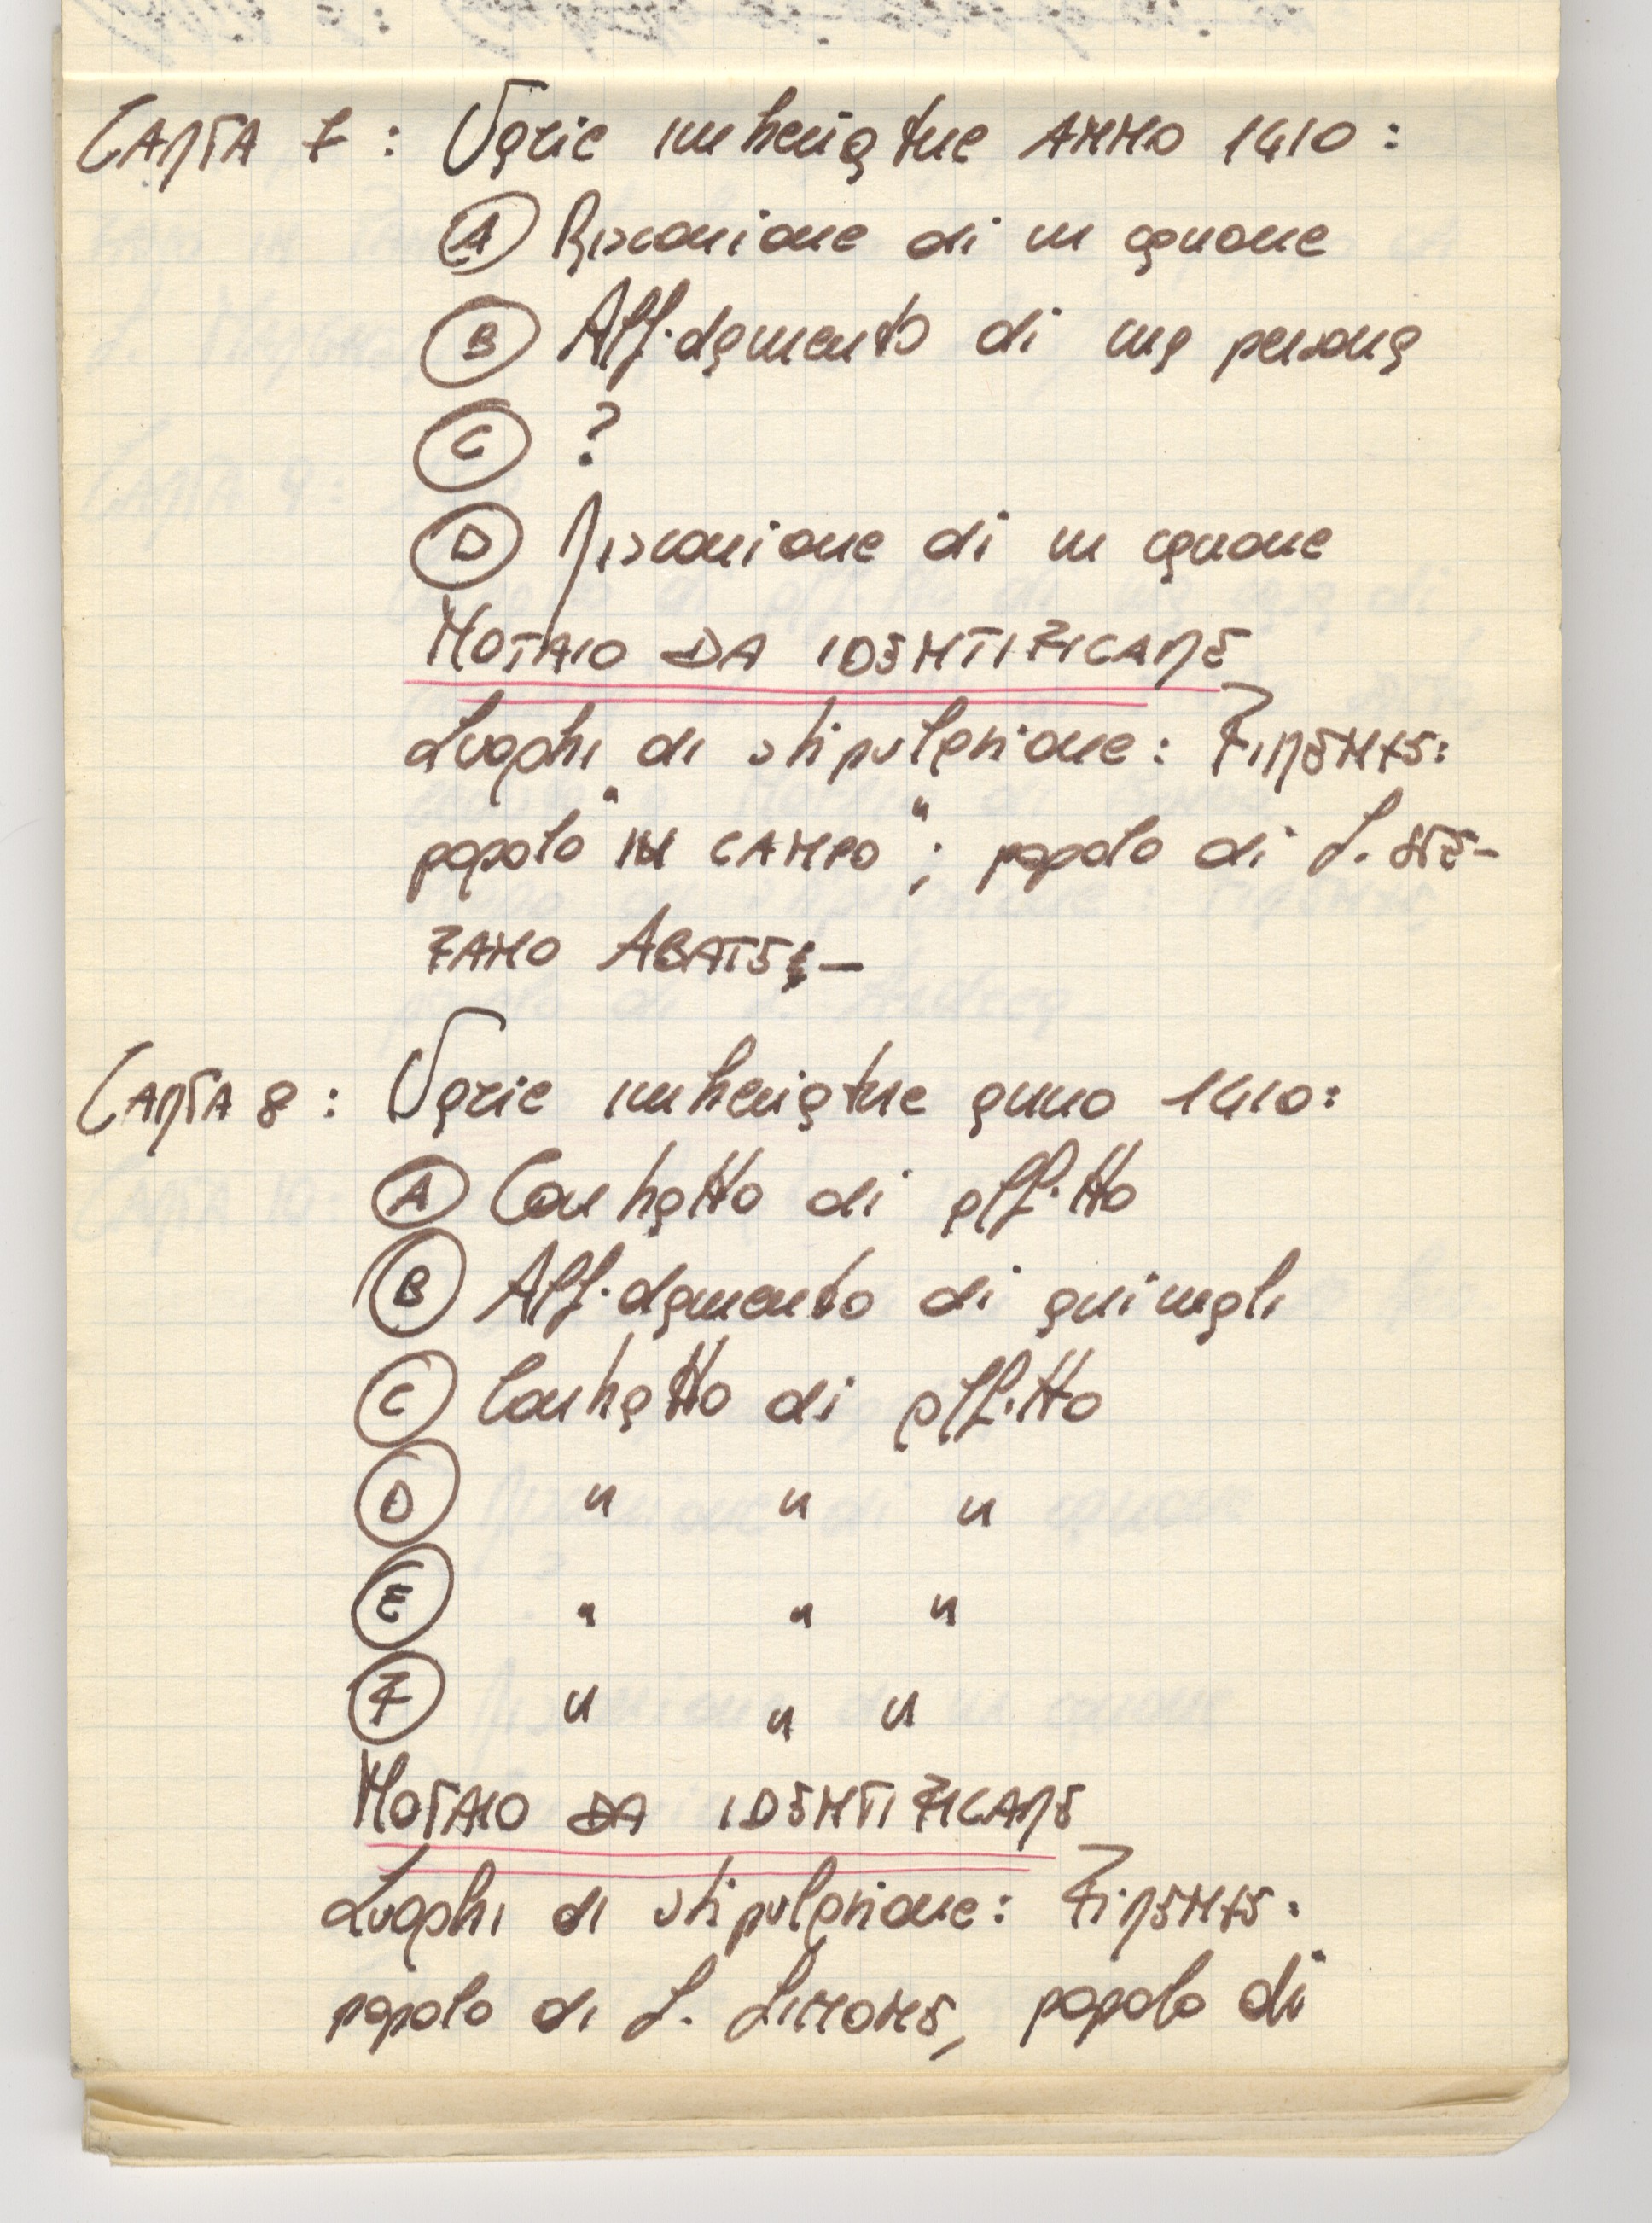 CARTA 7: Varie imbreviature ANNO 1410:
A Riscossione di un canone
B Affidamento di una persona
C ?
D Riscossione di un canone
NOTAIO DA IDENTIFICARE
Luoghi di stipulazione: FIRENZE:
popolo "IN CAMPO"; popolo di S. STE-
FANO ABATE; –
CARTA 8: Varie imbreviature anno 1410:
A Contratto di affitto
B Affidamento di animali
C Contratto di affitto
D " " "
E " " "
F " " "
NOTAIO DA IDENTIFICARE
Luoghi di stipulazione: FIRENZE:
popolo di S. SIMONE, popolo di